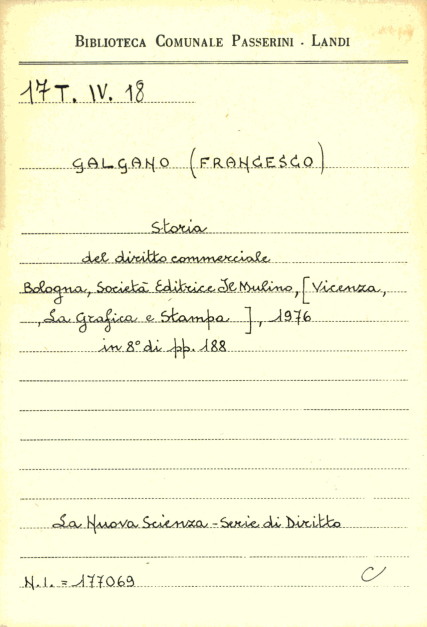 BIBLIOTECA COMUNALE PASSERINI - LANDI
17 T. IV. 18
GALGANO (FRANCESCO)
Storia
del diritto commerciale
Bologna, Società Editrice Il Mulino, [Vicenza,
La Grafica e Stampa], 1976
in 8° di pp. 188
La Nuova Scienza - Serie di Diritto
N.I. = 177069
C